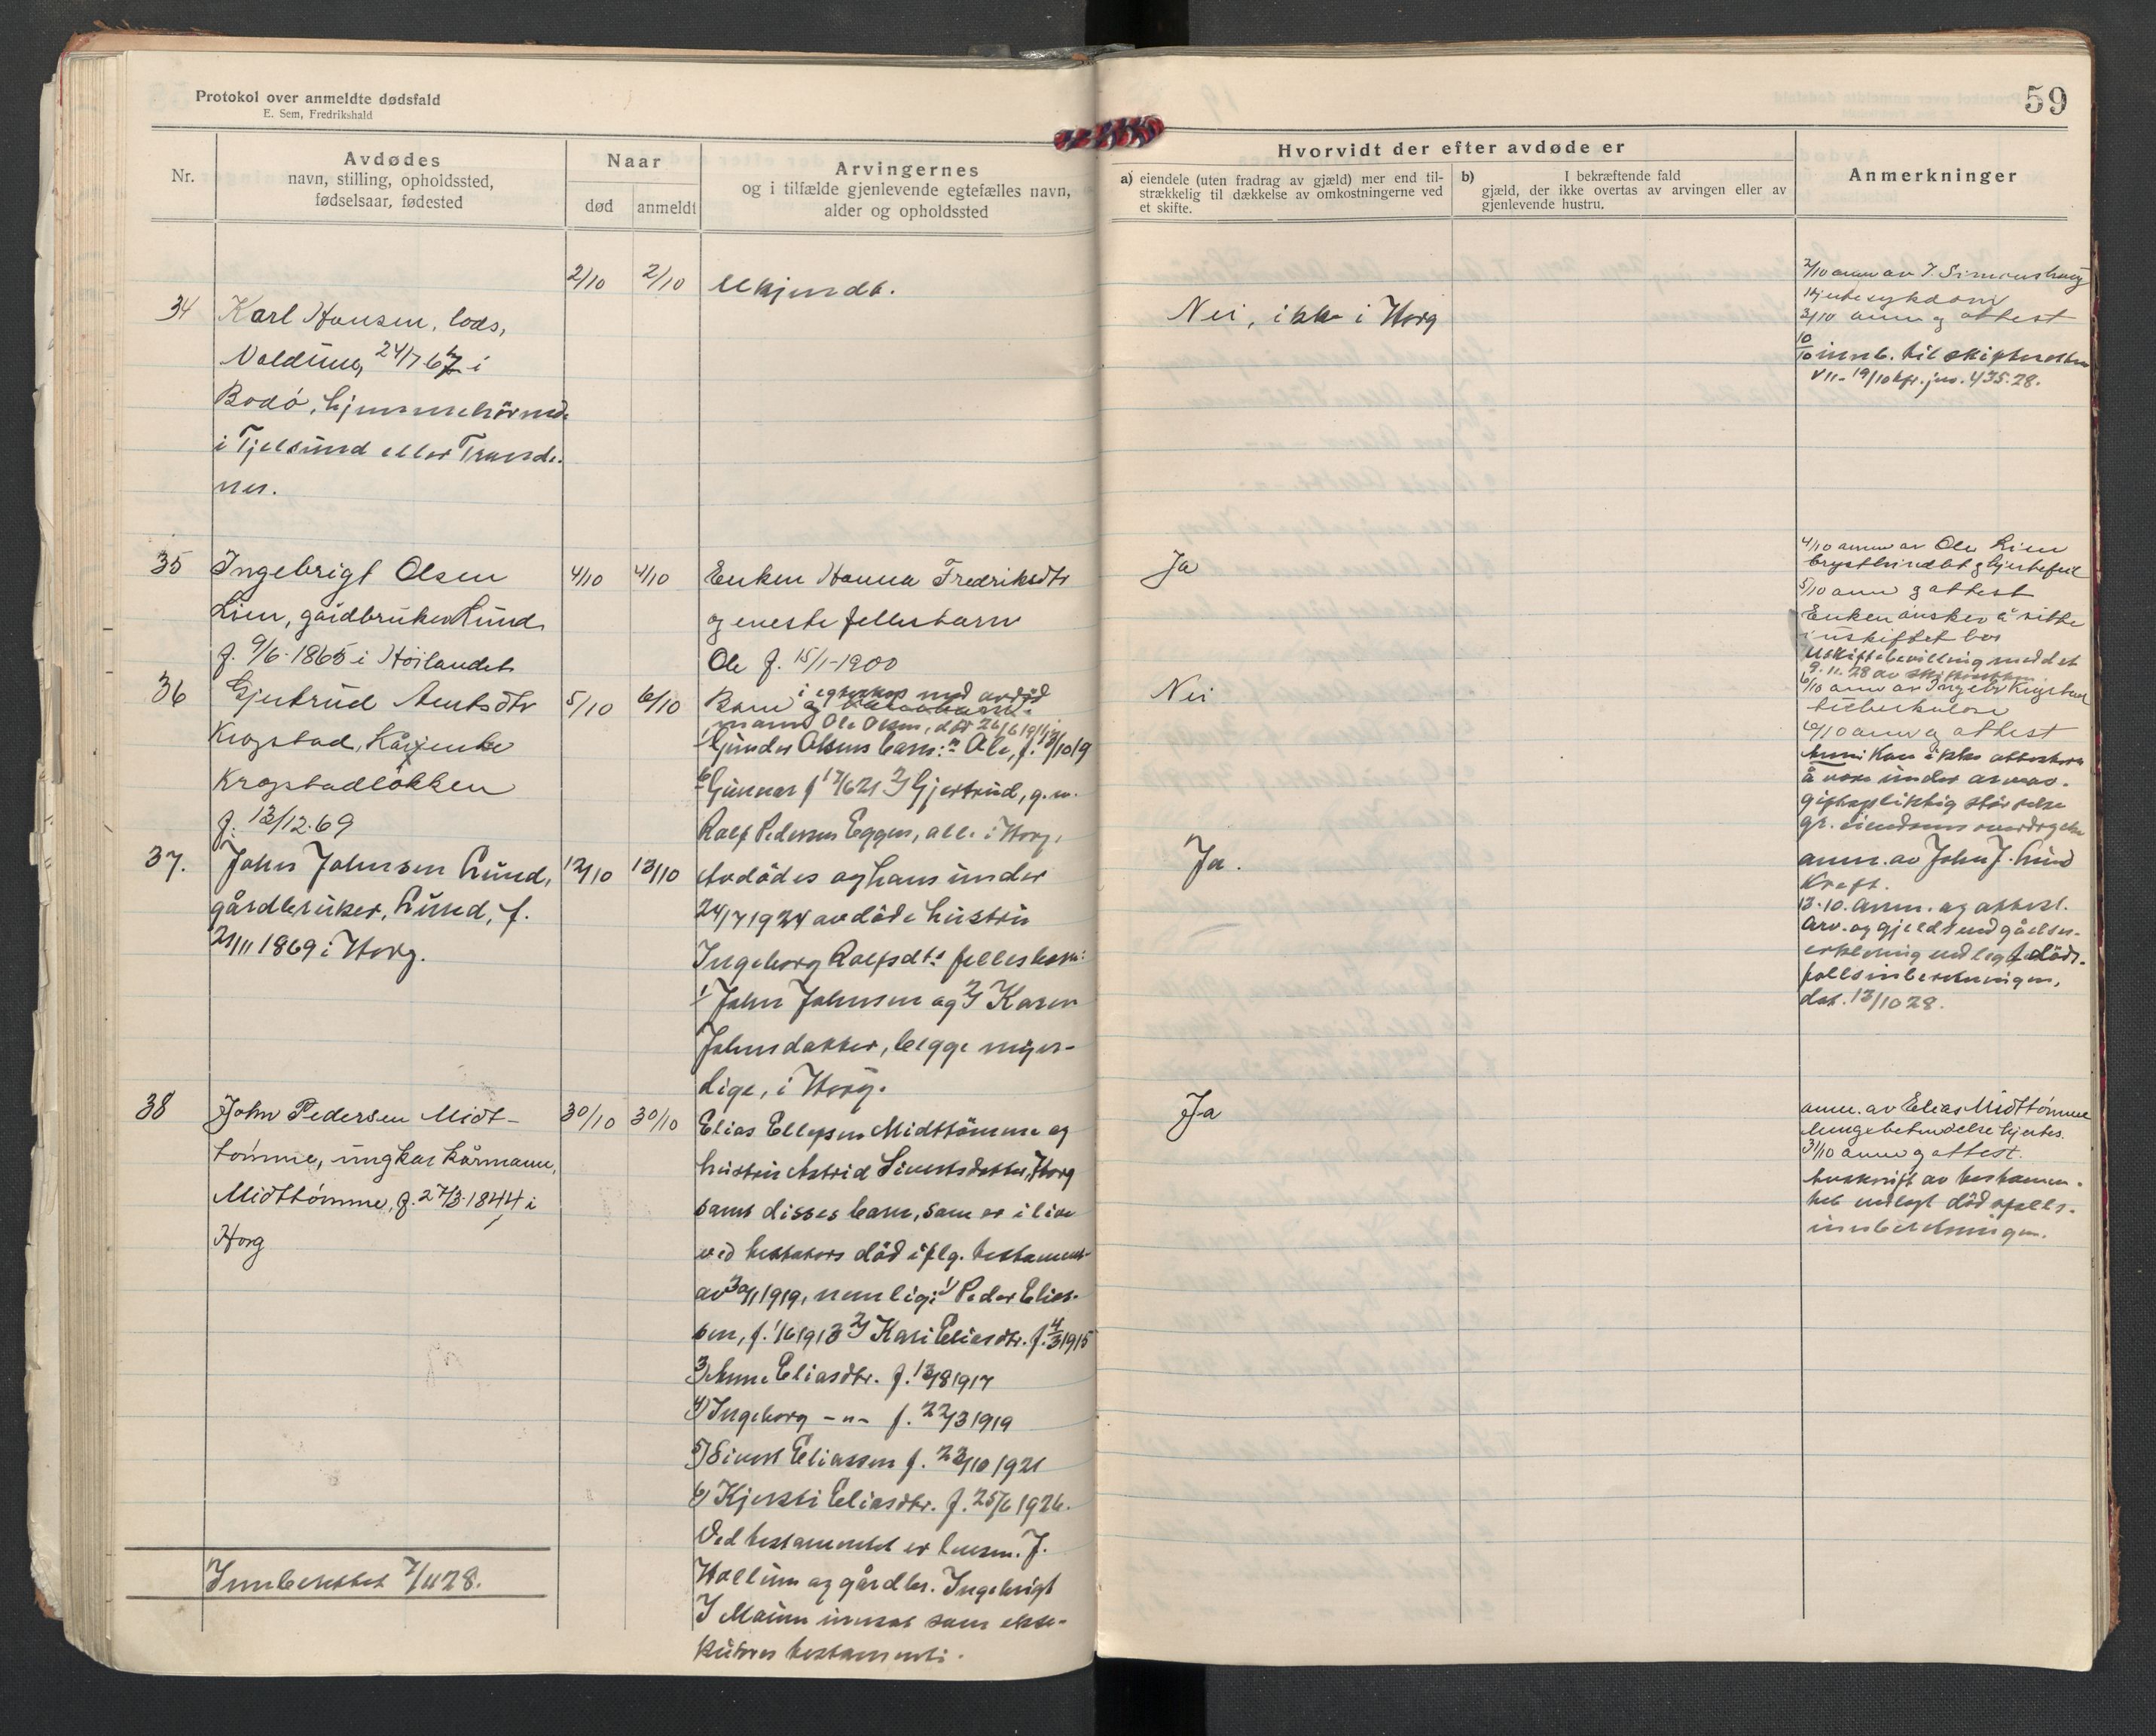 Protokol over anmeldte dødsfald
E. Sem, Fredrikshald
59
Nr.
Avdødes
navn, stilling, opholdssted,
fødselsaar, fødested
Naar
død
anmeldt
Arvingernes
og i tilfælde gjenlevende egtefælles navn,
alder og opholdssted
Hvorvidt der efter avdøde er
a) eiendele (uten fradrag av gjæld) mer end til-
strækkelig til dækkelse av omkostningerne ved
et skifte.
b) I bekræftende fald
gjæld, der ikke overtas av arvingen eller av
gjenlevende hustru.
Anmerkninger
34
Karl Hansen, lods,
24/7 67 i
Bodö, hjemmehörende
i Tjelsund eller Trande-
nes.
2/10
2/10
Ukjendt.
Nei, ikke i Horg
2/10 anm av J. Simonshaug
Hjertesykdom
3/10 anm og attest
10/10 innb. til skifteretten
19/10 jnr. 435.28.
35
Ingebrigt Olsen
Lien, gårdbruker Lund
f. 9/6-1865 i Höilandet
4/10
4/10
Enken Hanna Fredriksdtr
og eneste fellesbarn
Ole f. 15/1-1900
Ja
4/10 anm av Ole Lien
brystbindt og hjertefeil
5/10 anm og attest
Enken önsker å sitte
i uskiftet bo
Uskiftebevilling meddelt
9.11.28 av skifteretten
36
Gjertrud Arntsdtr
Krogstad, Kårenke
Krogstadlökken
f. 13/12.69
5/10
6/10
Barn i egteskap med avdöd
mann Ole Olsen, död 26/6 19
Gunder Olsens barn: Ole, f. /10 19
Gunnar f 17/6 21 2) Gjertrud, g. m.
Ralf Pedersen Eggen, alle i Horg.
Nei
6/10 anm av Ingebr Krogstad
tuberkulose
6/10 anm og attest
Anm: Kan ikke attestere
å være under arveav-
giftspliktig störrelse
gr. eiendomsoverdragelse
37.
John Johnsen Lund,
gårdbruker, Lund, f.
21/11 1869 i Horg.
12/10
13/10
Avdödes og hans under
24/7 1924 avdöde hustru
Ingeborg Ralfsdt.s fellesbarn:
1/ John Johnsen og 2/ Karen
Johnsdatter, begge myn-
dige, i Horg.
Ja.
anm. av John J. Lund
Kreft.
13-10. anm. og attest.
Arv. og gjeldsvedgåelses-
erklering vedlagt döds-
fallsinberetningen,
dat. 13/10 28.
38
John Pedersen Midt-
tömme, ungkar kårmann,
Midttömme, f. 27/3-1844 i
Horg
30/10
30/10
Elias Ellefsen Midttömme og
hustru Astrid Sivertsdatter, Horg
samt disses barn, som er i live
ved testators död iflg. testament
av 30/1 1919, nemlig: 1/ Peder Elias-
sen, f. 1/6 1913 2/ Kari Eliasdtr. f. 4/3 1915
3) Anne Eliasdtr. f. 13/8 1917
4) Ingeborg -"- f. 22/3 1919
5) Sivert Eliassen f. 23/10 1921
6) Kjersti Eliasdtr. f. 25/6 1926.
Ved testamentet er lensm. J.
Hollum og gårdbr. Ingebrigt
J Moum innsat som ekse-
kutores testamenti.
Ja
anm. av Elias Midttömme
lungebetendelse hjertes.
31/10 anm og attest.
Avskrift av testamen-
tet vedlagt dödsfalls-
innberetningen.
Innberettet 7/11 28.